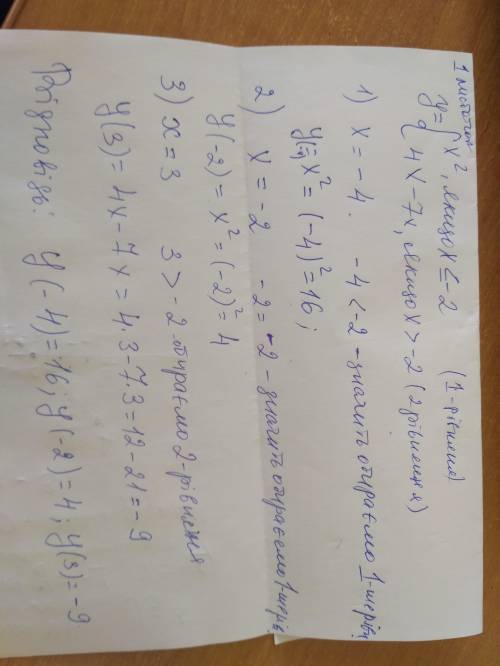 1 листопада
y={ x², якщо x ≤ -2 (1-рівняння)
4x-7x, якщо x > -2 (2 рівняння)
1) x = -4. -4 < -2 - значить обираємо 1-ше рівн
y(-4)= x² = (-4)² = 16;
2) x = -2 -2 = -2 - значить обираємо 1-ше рівн
y(-2) = x² = (-2)² = 4
3) x = 3 3 > -2 обираємо 2-рівняння
y(3) = 4x - 7x = 4·3 - 7·3 = 12 - 21 = -9
Відповідь: y(-4) = 16; y(-2) = 4; y(3) = -9